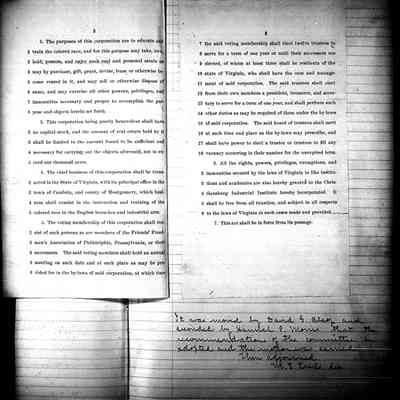 2
1. The purposes of this corporation are to educate and
2 train the colored race, and for this purpose may take,
3 hold, possess, and enjoy such real and personal estate as
4 may by purchase, gift, grant, devise, lease, or otherwise be-
5 come vested in it, and may sell or otherwise dispose of
6 same, and may exercise all other powers, privileges, and
7 immunities necessary and proper to accomplish the pur-
8 pose and objects herein set forth.
3. This corporation being purely benevolent shall have
2 no capital stock, and the amount of real estate held by it
3 shall be limited to the amount found to be sufficient and
4 necessary for carrying out the objects aforesaid, not to ex-
5 ceed one thousand acres.
4. The chief business of this corporation shall be trans-
2 acted in the State of Virginia, with its principal office in the
3 town of Cambria, and county of Montgomery, which busi-
4 ness shall consist in the instruction and training of the
5 colored race in the English branches and industrial arts.
5. The voting membership of this corporation shall con-
2 sist of such persons as are members of the Friends' Freed-
3 men's Association of Philadelphia, Pennsylvania, or their
4 successors. The said voting members shall hold an annual
5 meeting on such date and at such place as may be pro-
6 vided for in the by-laws of said corporation, at which time
7 the said voting membership shall elect twelve trustees to
8 serve for a term of one year or until their successors are
9 elected, of whom at least three shall be residents of the
10 state of Virginia, who shall have the care and manage-
11 ment of said corporation. The said trustees shall elect
12 from their own members a president, treasurer, and secre-
13 tary to serve for a term of one year, and shall perform such
14 other duties as may be required of them under the by-laws
15 of said corporation. The said board of trustees shall meet
16 at such time and place as the by-laws may prescribe, and
17 shall have power to elect a trustee or trustees to fill any
18 vacancy occurring in their number for the unexpired term.
6. All the rights, powers, privileges, exemptions, and
2 immunities secured by the laws of Virginia to like institu-
3 tions and academies are also hereby granted to the Chris-
4 tiansburg Industrial Institute hereby incorporated. It
5 shall be free from all taxation, and subject in all respects
6 to the laws of Virginia in such cases made and provided.
7. This act shall be in force from its passage.
It was moved by David G. Alsop and
seconded by Samuel P. Morris that the
recommendations of the committee be
adopted and the motion was carried
Then adjourned